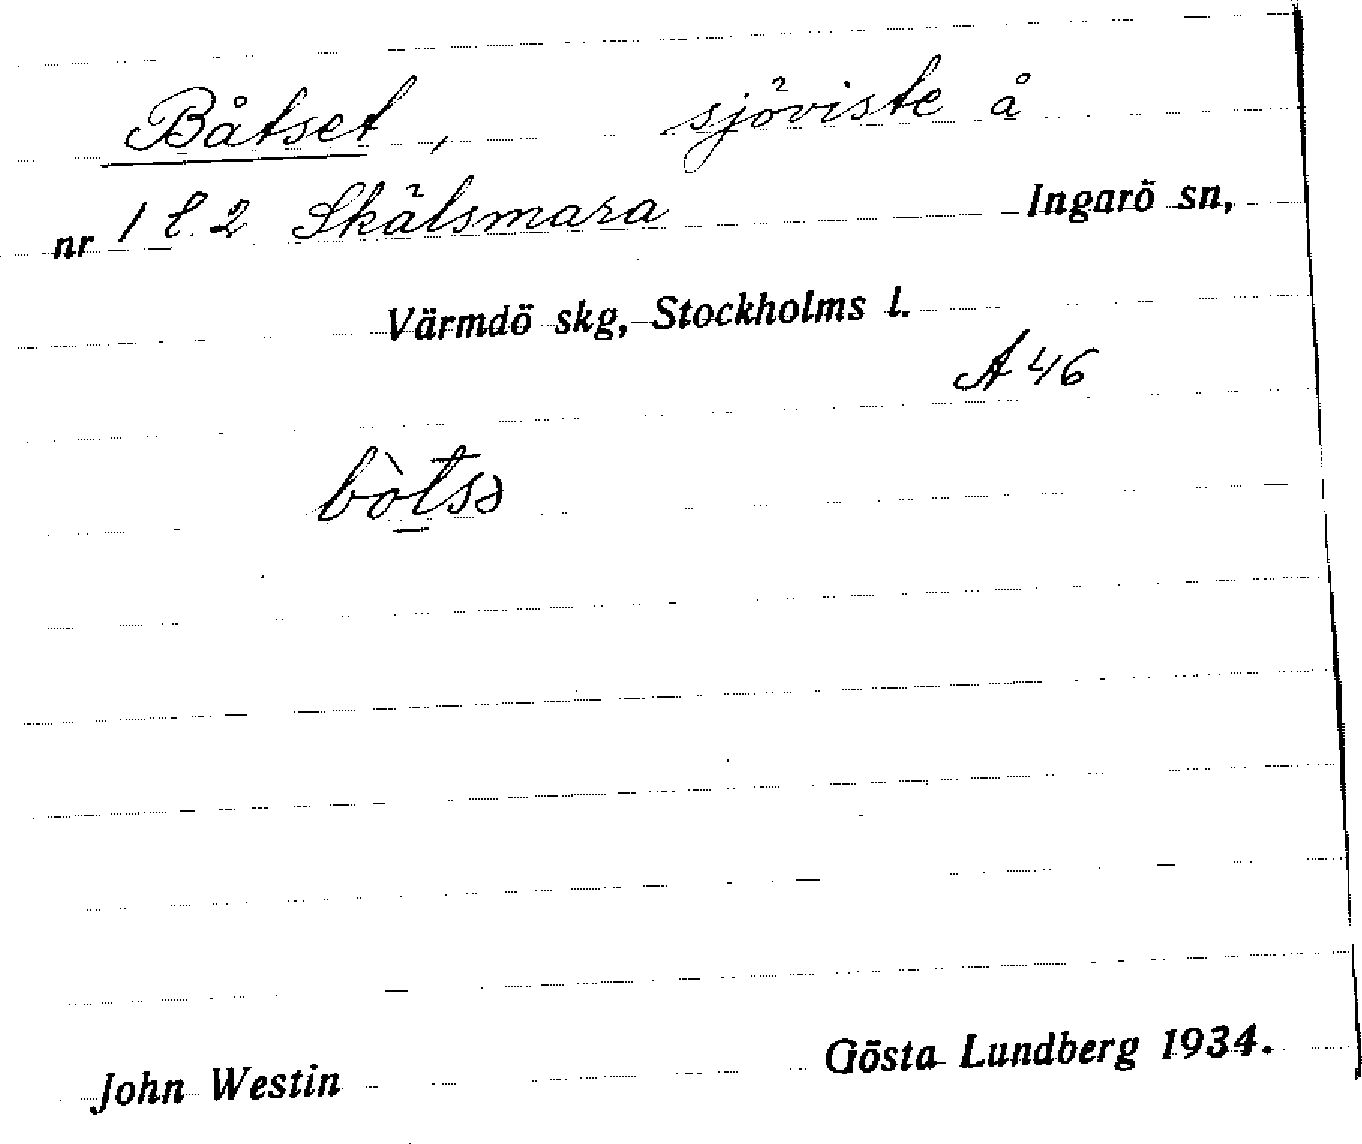 Båtset, sjöviste å
nr 1 l. 2 Skälsmara Ingarö sn,
Värmdö skg, Stockholms l.
A 46
bòtsə
John Westin Gösta Lundberg 1934.